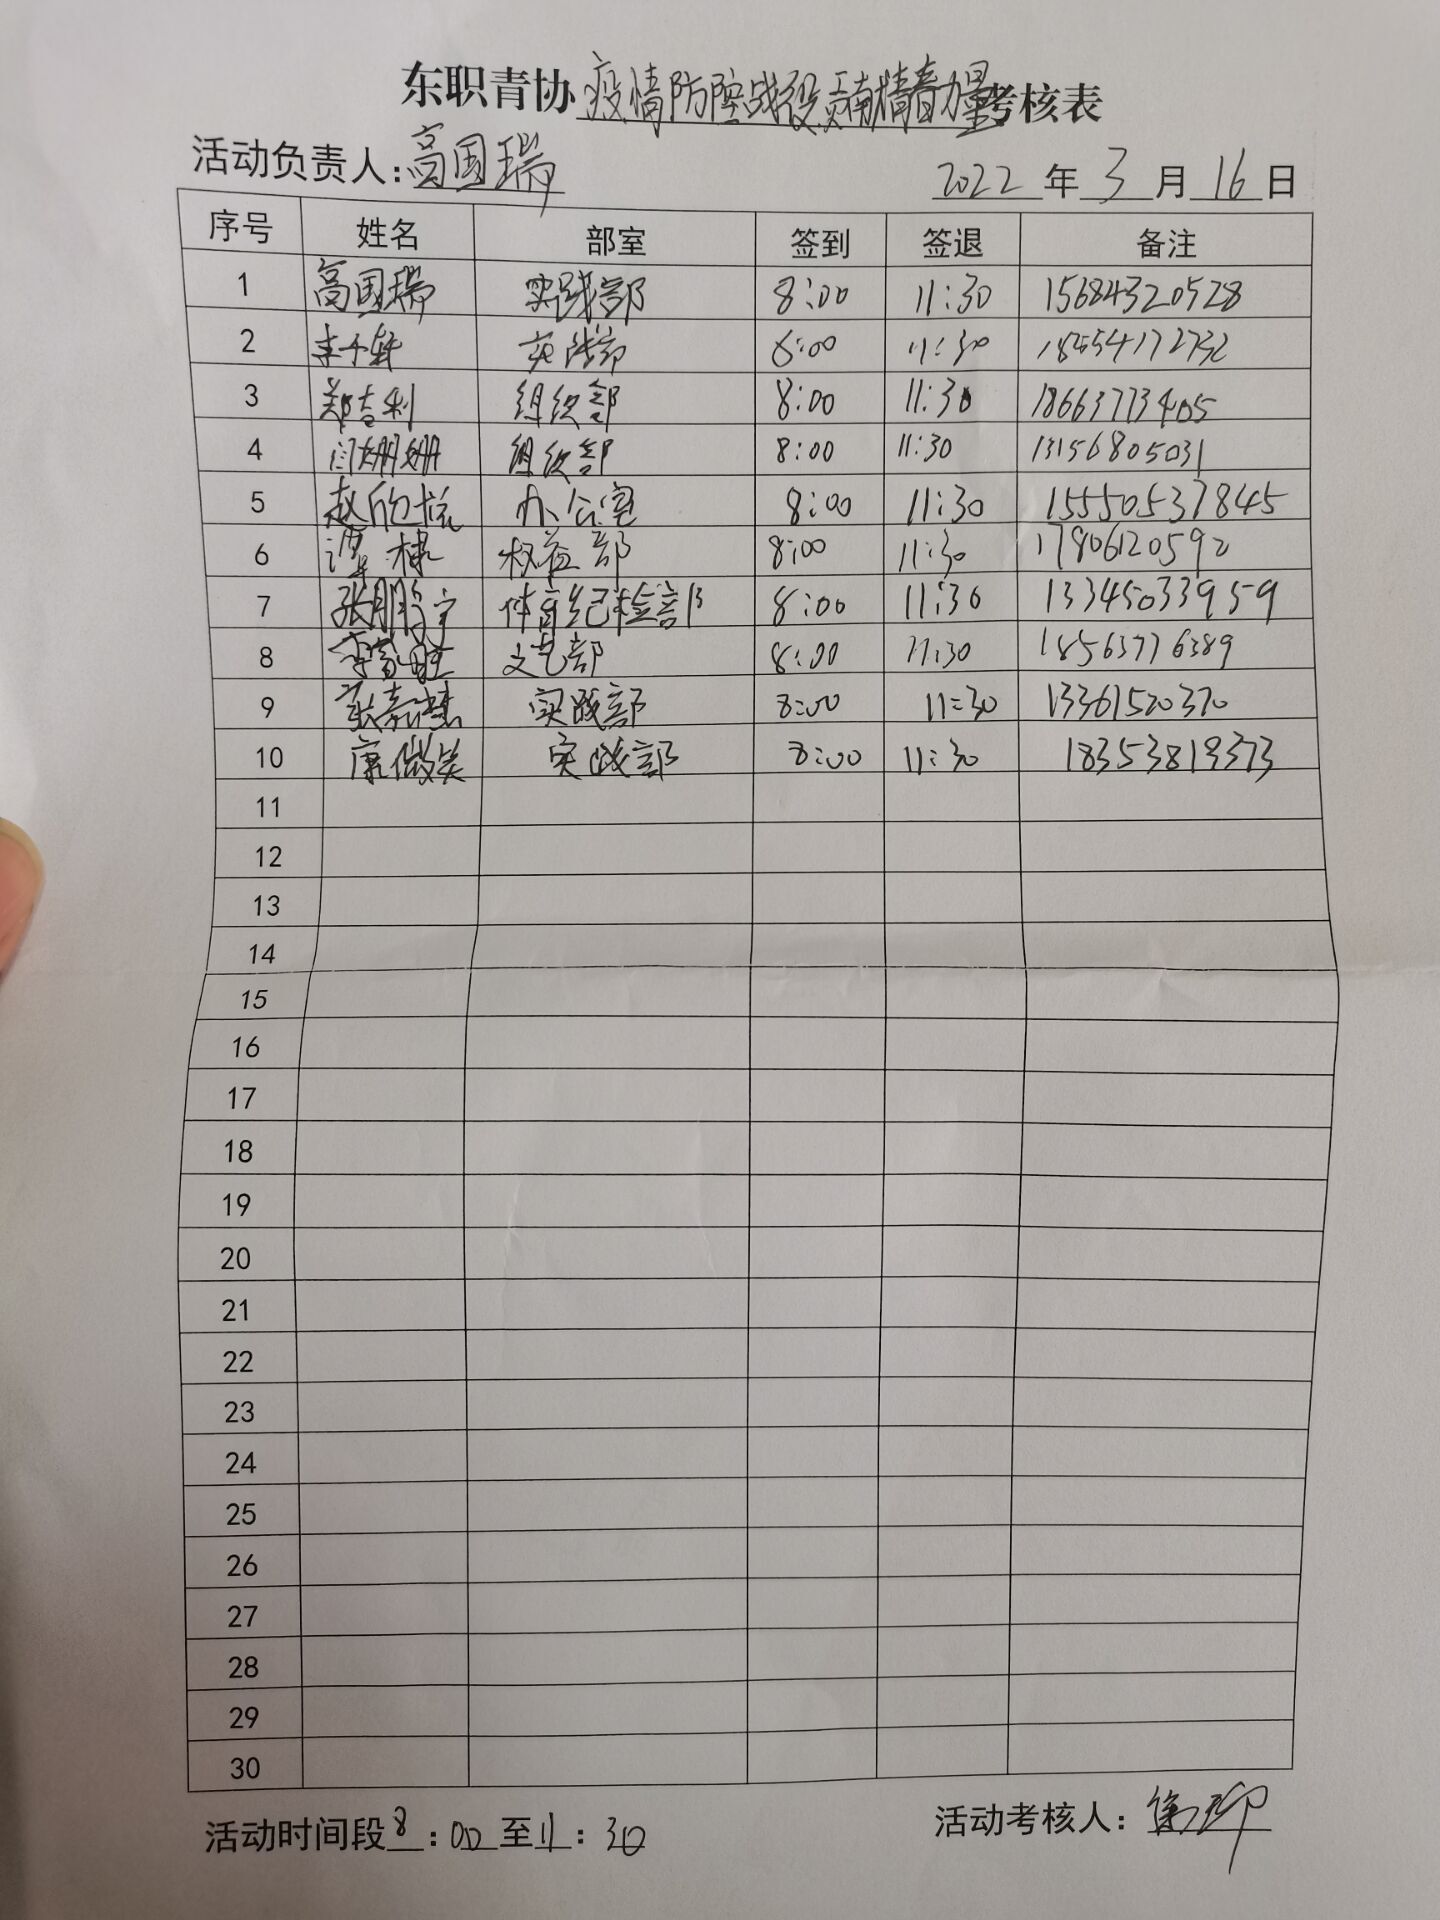 东职青协疫情防控战役贡献青春力量考核表
活动负责人:高国瑞 2022年3月16日
序号 姓名 部室 签到 签退 备注
1 高国瑞 实践部 8:00 11:30 15684320528
2 李子轩 实践部 8:00 11:30 18554172732
3 郑吉利 组织部 8:00 11:30 18663773405
4 闫姗姗 组织部 8:00 11:30 13156805031
5 赵欣悦 办公室 8:00 11:30 15550537845
6 谭棣 权益部 8:00 11:30 17806120592
7 张鹏宇 体育纪检部 8:00 11:30 13345033959
8 李富旺 文艺部 8:00 11:30 18563776389
9 嘉慧 实践部 8:00 11:30 13361520370
10 康微笑 实践部 8:00 11:30 18353819373
11
12
13
14
15
16
17
18
19
20
21
22
23
24
25
26
27
28
29
30
活动时间段8:00至11:30 活动考核人: